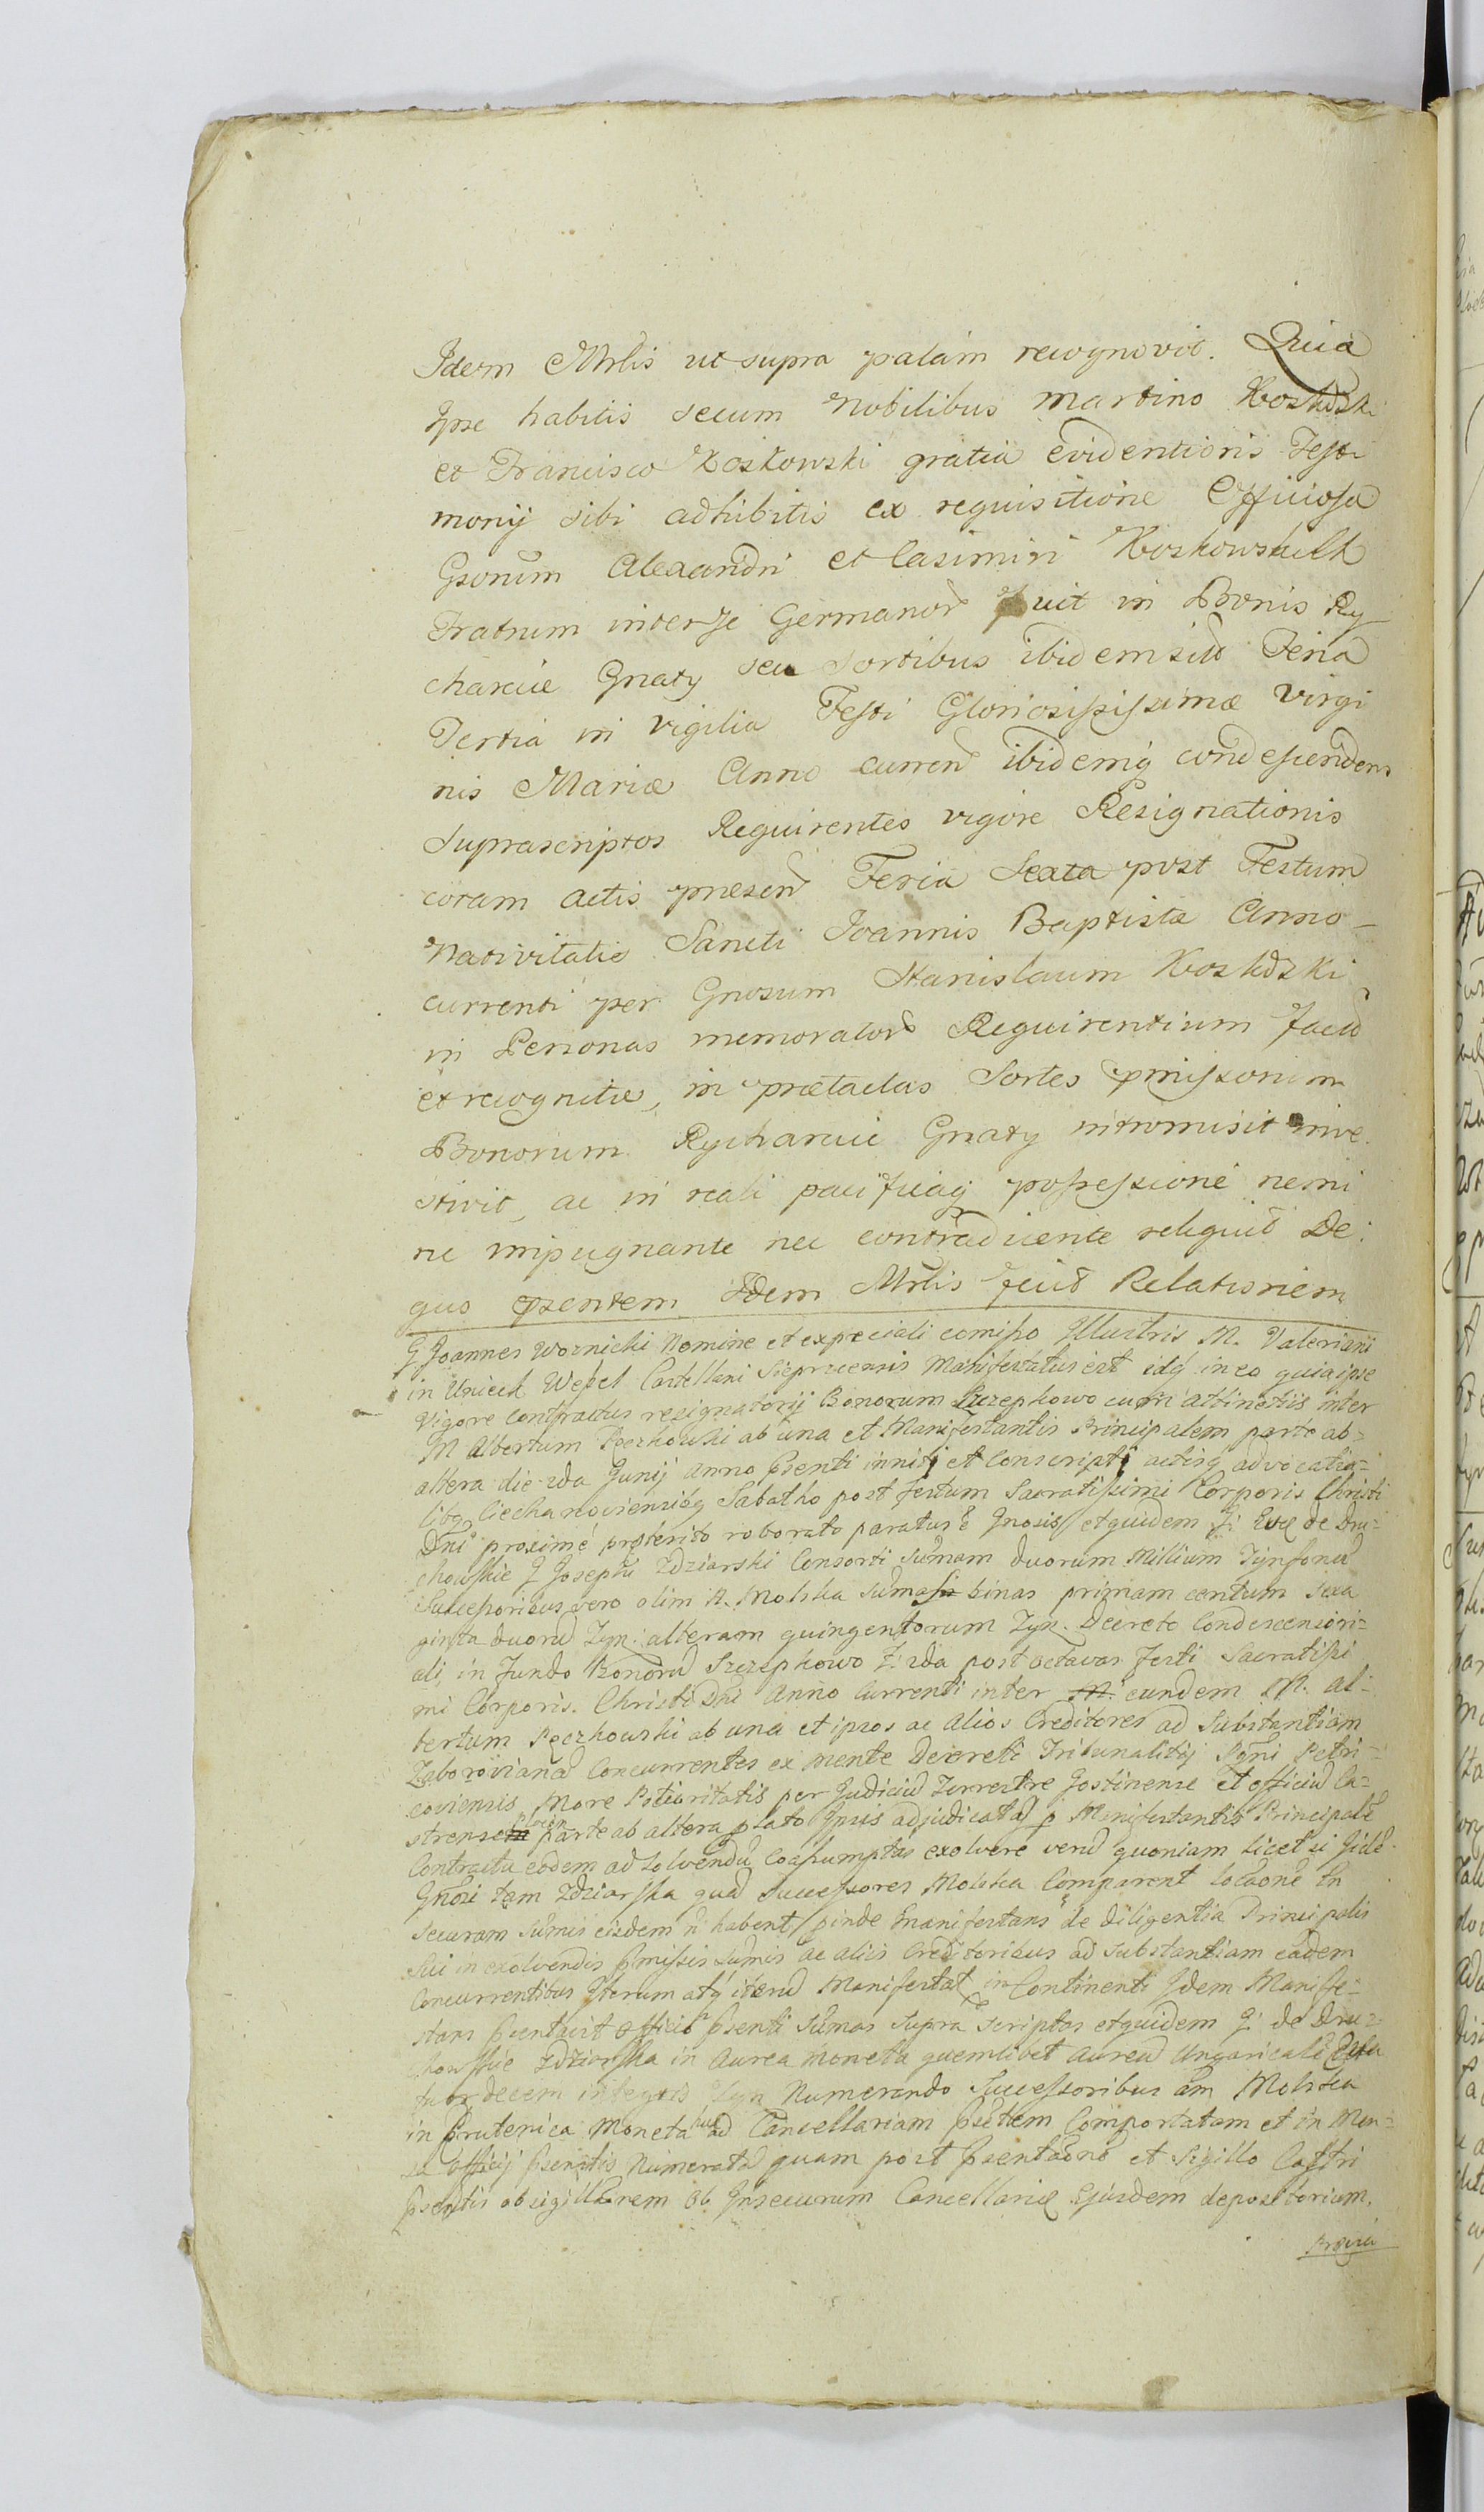 Idem Mrlis ut supra palam recognovit. Quia
Ipse habitis secum Nobilibus Martino Koskowski
et Francisco Koskowski gratia evidentioris Testi
monij sibi adhibitis ex requisitione Officiosa
Gsorum Alexandri et Casimiri Koskowskich
Fratrum inter se Germanor fuit in Bonis Ry
charcice Gnaty seu sortibus ibidem sit Feria
Tertia in vigilia Festi Gloriosissimæ Virgi
nis Mariæ Anno curren ibidemq condescendens
suprascriptos Requirentes vigore Resignationis
coram actis præsen Feria Sexta post Festum
Nativitatis Sancti Joannis Baptistæ Anno
currenti per Gnosum Stanislaum Koskowski
in Personas memorator Requirentium fact
et recognitæ, in prætactas Sortes pmissorum
Bonorum Rycharcice Gnaty intromisit inve
stivit, ac in reali pacificaq possessione nemi
ne impugnante nec contradicente reliquit De
quo psentem Idem Mrlis fecit Relationem
G Joannes Woznicki Nomine et expeciali comisso Illustris M. Valeriani
in Unieck Wessel Castellani Sieprcensis Manifestatus est idq in eo quia ipse
Vigore Contractus resignatorij Bonorum Szczepkowo cum attinentiis inter
M Albertum Pęczkowski ab una et Manifestantis Principalem parte ab
altera die 2da Junij anno psenti initi et Conscripti actisq advocatia
libq Ciechanoviensibq Sabatho post festum Sacratissimi Corporis Christi
Dni proximé præterito roborato paratus e Gnosis et quidem G: Evæ de Dru
chowskie G Josephi Zdziarski Consorti sumam duorum Millium Tynfonu
Successoribus vero olim A. Molska sumas binas primam centum sexa
ginta duoru Tyn: alteram quingentorum Tyn. Decreto Condescensori
ali, in fundo Bonoru Szczepkowo F: 2da post octavas festi Sacratissi
mi Corporis Christi Dni Anno Currenti inter M. eundem M. Al
bertum Pęczkowski ab una et ipsos ac Alios Creditores ad Substantiam
Zaborowiana Concurrentes ex mente Decreti Tribunalitij Rgni Petri
coviensis More Potioritatis per Judiciu Terrestre Gostinense et officiu Ca
strense parte ab altera plato Ipsis adjudicatas p Manifestantis Principale
Contractu eodem ad solvendu coassumptas exolvere veru quoniam licet ii Iide
Gnosi tam Zdziarska qua successores Molska Comparent locaone tn
securam sumis eisdem n habent, pinde Manifestans de diligentia Principalis
sui in exolvendis pmissis sumis ac aliis Creditoribus ad substantiam eadem
Concurrentibus Iterum atq iteru Manifestat, in Continenti Idem Manife
stans psentavit officio psenti sumas supra scriptas et quidem G: de Dru
chowskie Zdziarska in Aurea Moneta quemlibet Aureu Ungaricale Qua
tuor decem integris Tyn Numerando Successoribus am Molska
in Prutenica Moneta huc ad Cancellariam psetem Comportatam et in Men
sa officij psentis Numerata quam post psentaone et Sigillo Castri
psentis obsigillaonem Ob Insecurum Cancellariæ Ejusdem depositorium,